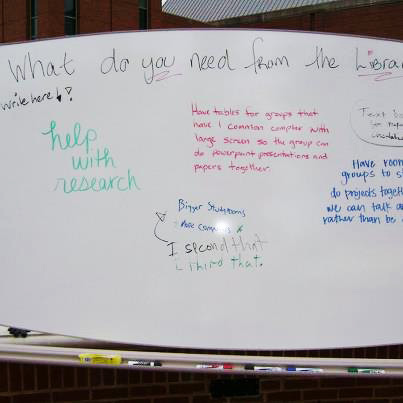 What do you need from the Librar
write here !
help
with
research
Have tables for groups that
have 1 common compter with
large screen so the group can
do powerpoint presentations and
papers together.
Text bo
Have room
groups to st
do projects togeth
we can talk a
rather than be
Bigger Studyrooms
More Computers
I second that
I third that.